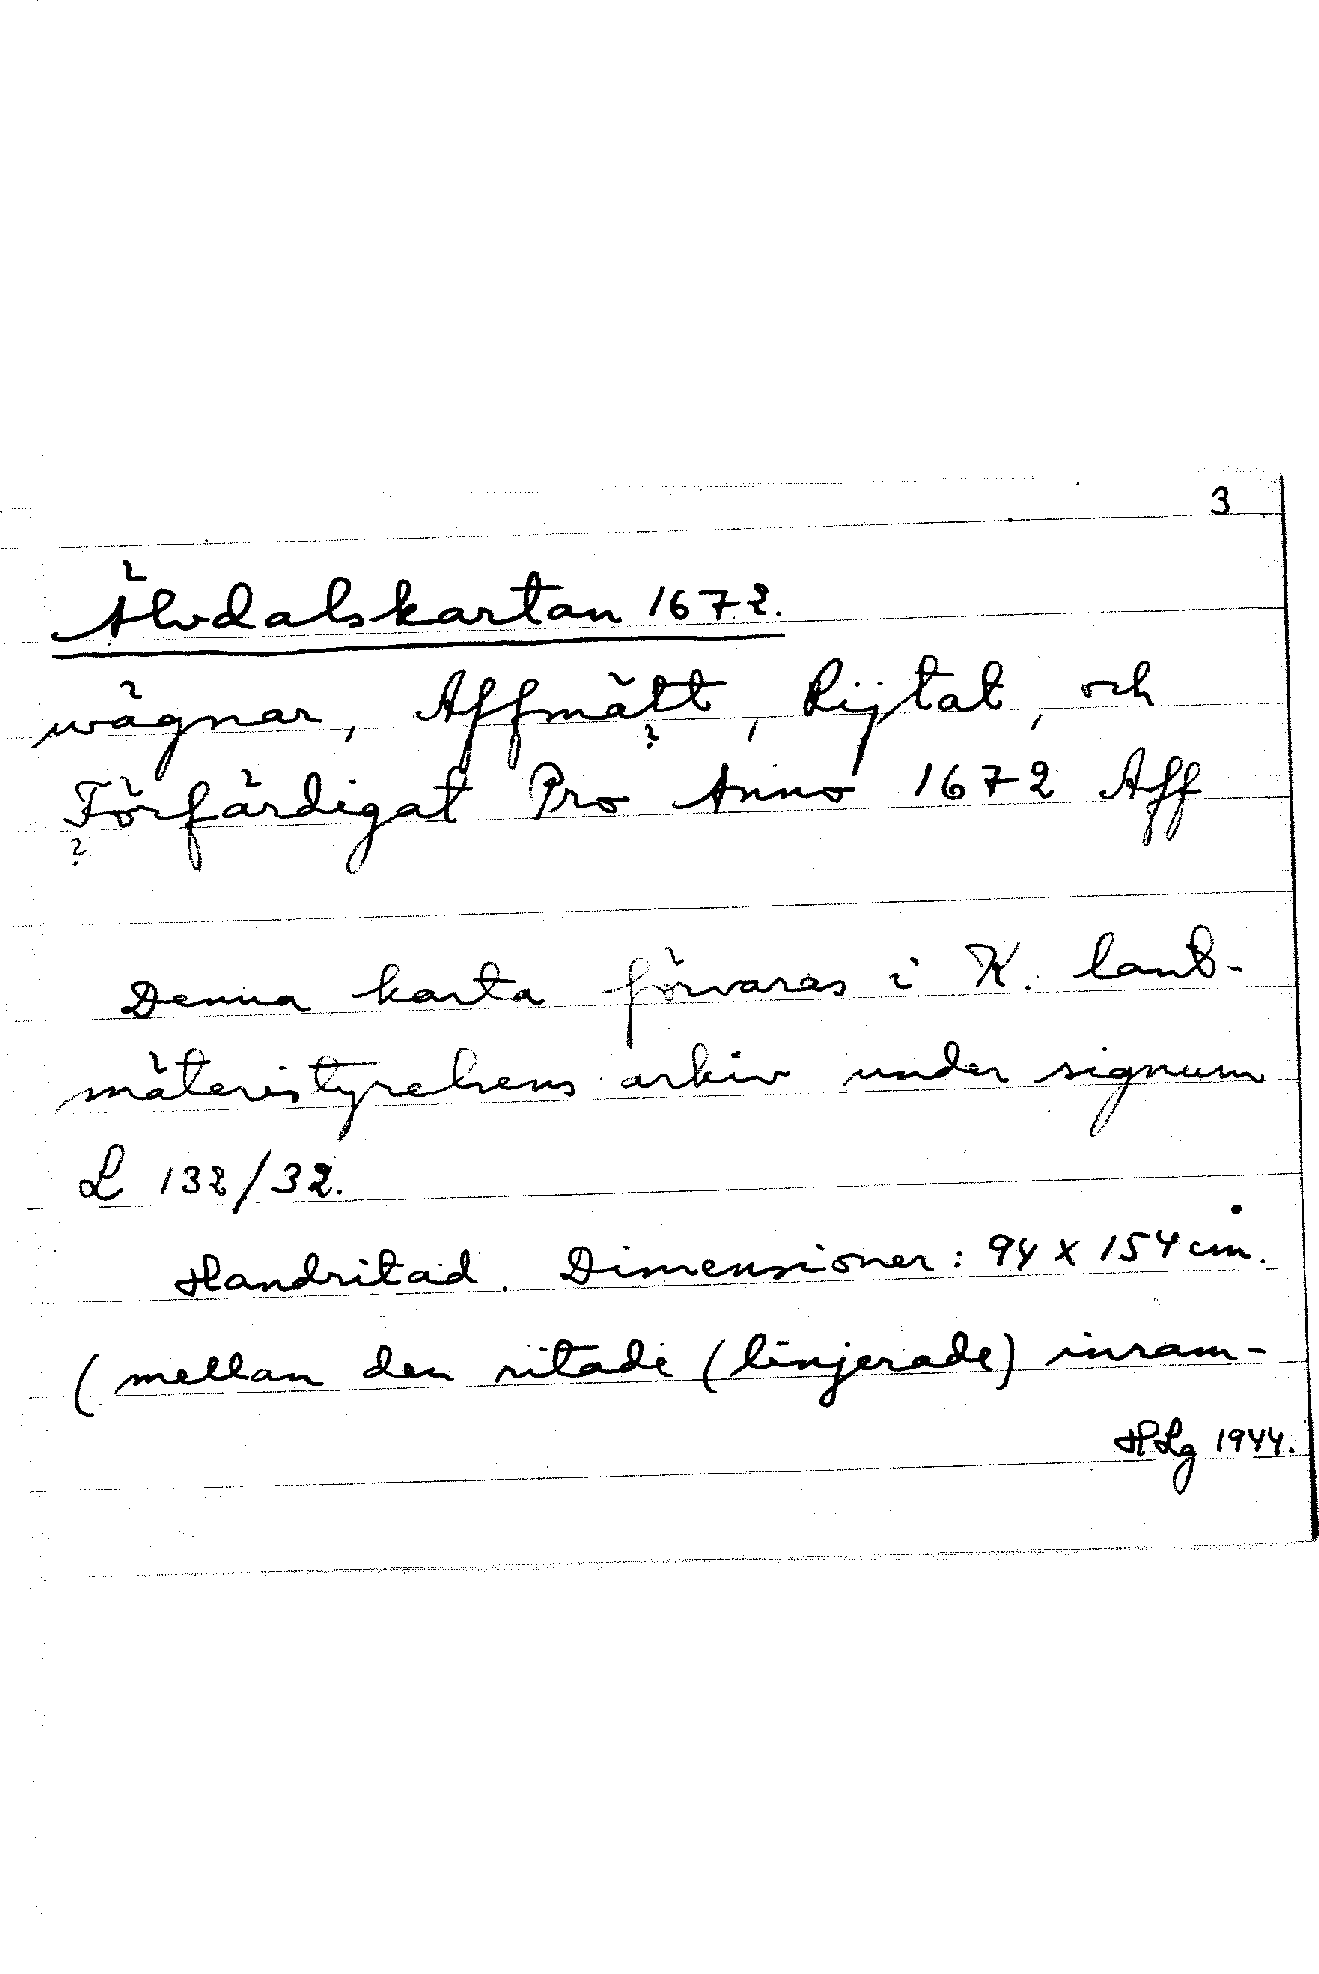 3
Älvdalskartan 1672.
wägnar, Affmätt, Rijtat, och
?
Förfärdigat Pro Anno 1672 Aff
?
Denna karta förvaras i K. lant-
mäteristyrelsens arkiv under signum
L 132/32.
Handritad. Dimensioner: 94 x 154 cm.
(mellan den ritade (linjerade) inram-
HLg 1944.